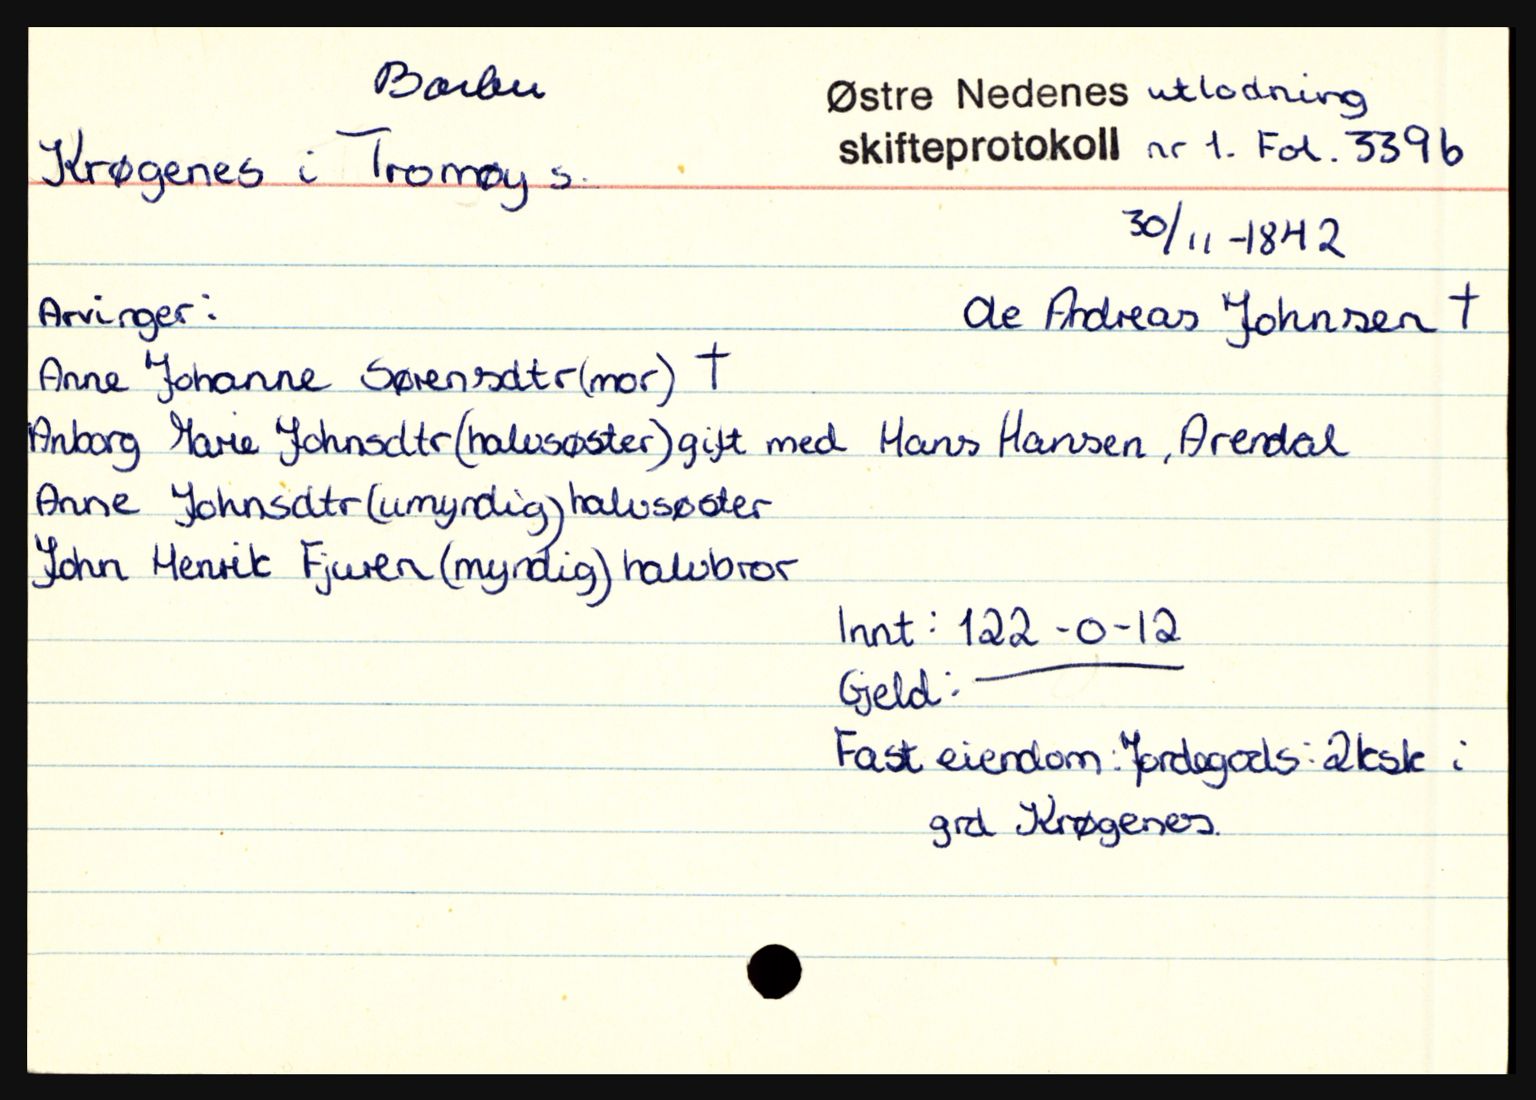 Barbu
Østre Nedenes utlodning
skifteprotokoll nr 1. Fol. 339b
Krøgenes i Tromøy s.
30/11-1842
Arvinger:
de Andreas Johnsen †
Anne Johanne Sørensdtr (mor) †
Anborg Marie Johnsdtr (halvsøster) gift med Hans Hansen, Arendal
Anne Johnsdtr (umyndig) halvsøster
John Henrik Fjuren (myndig) halvbror
Innt: 122-0-12
Gjeld:
Fast eiendom: Jordegods: 2ksk i
grd Krøgenes.